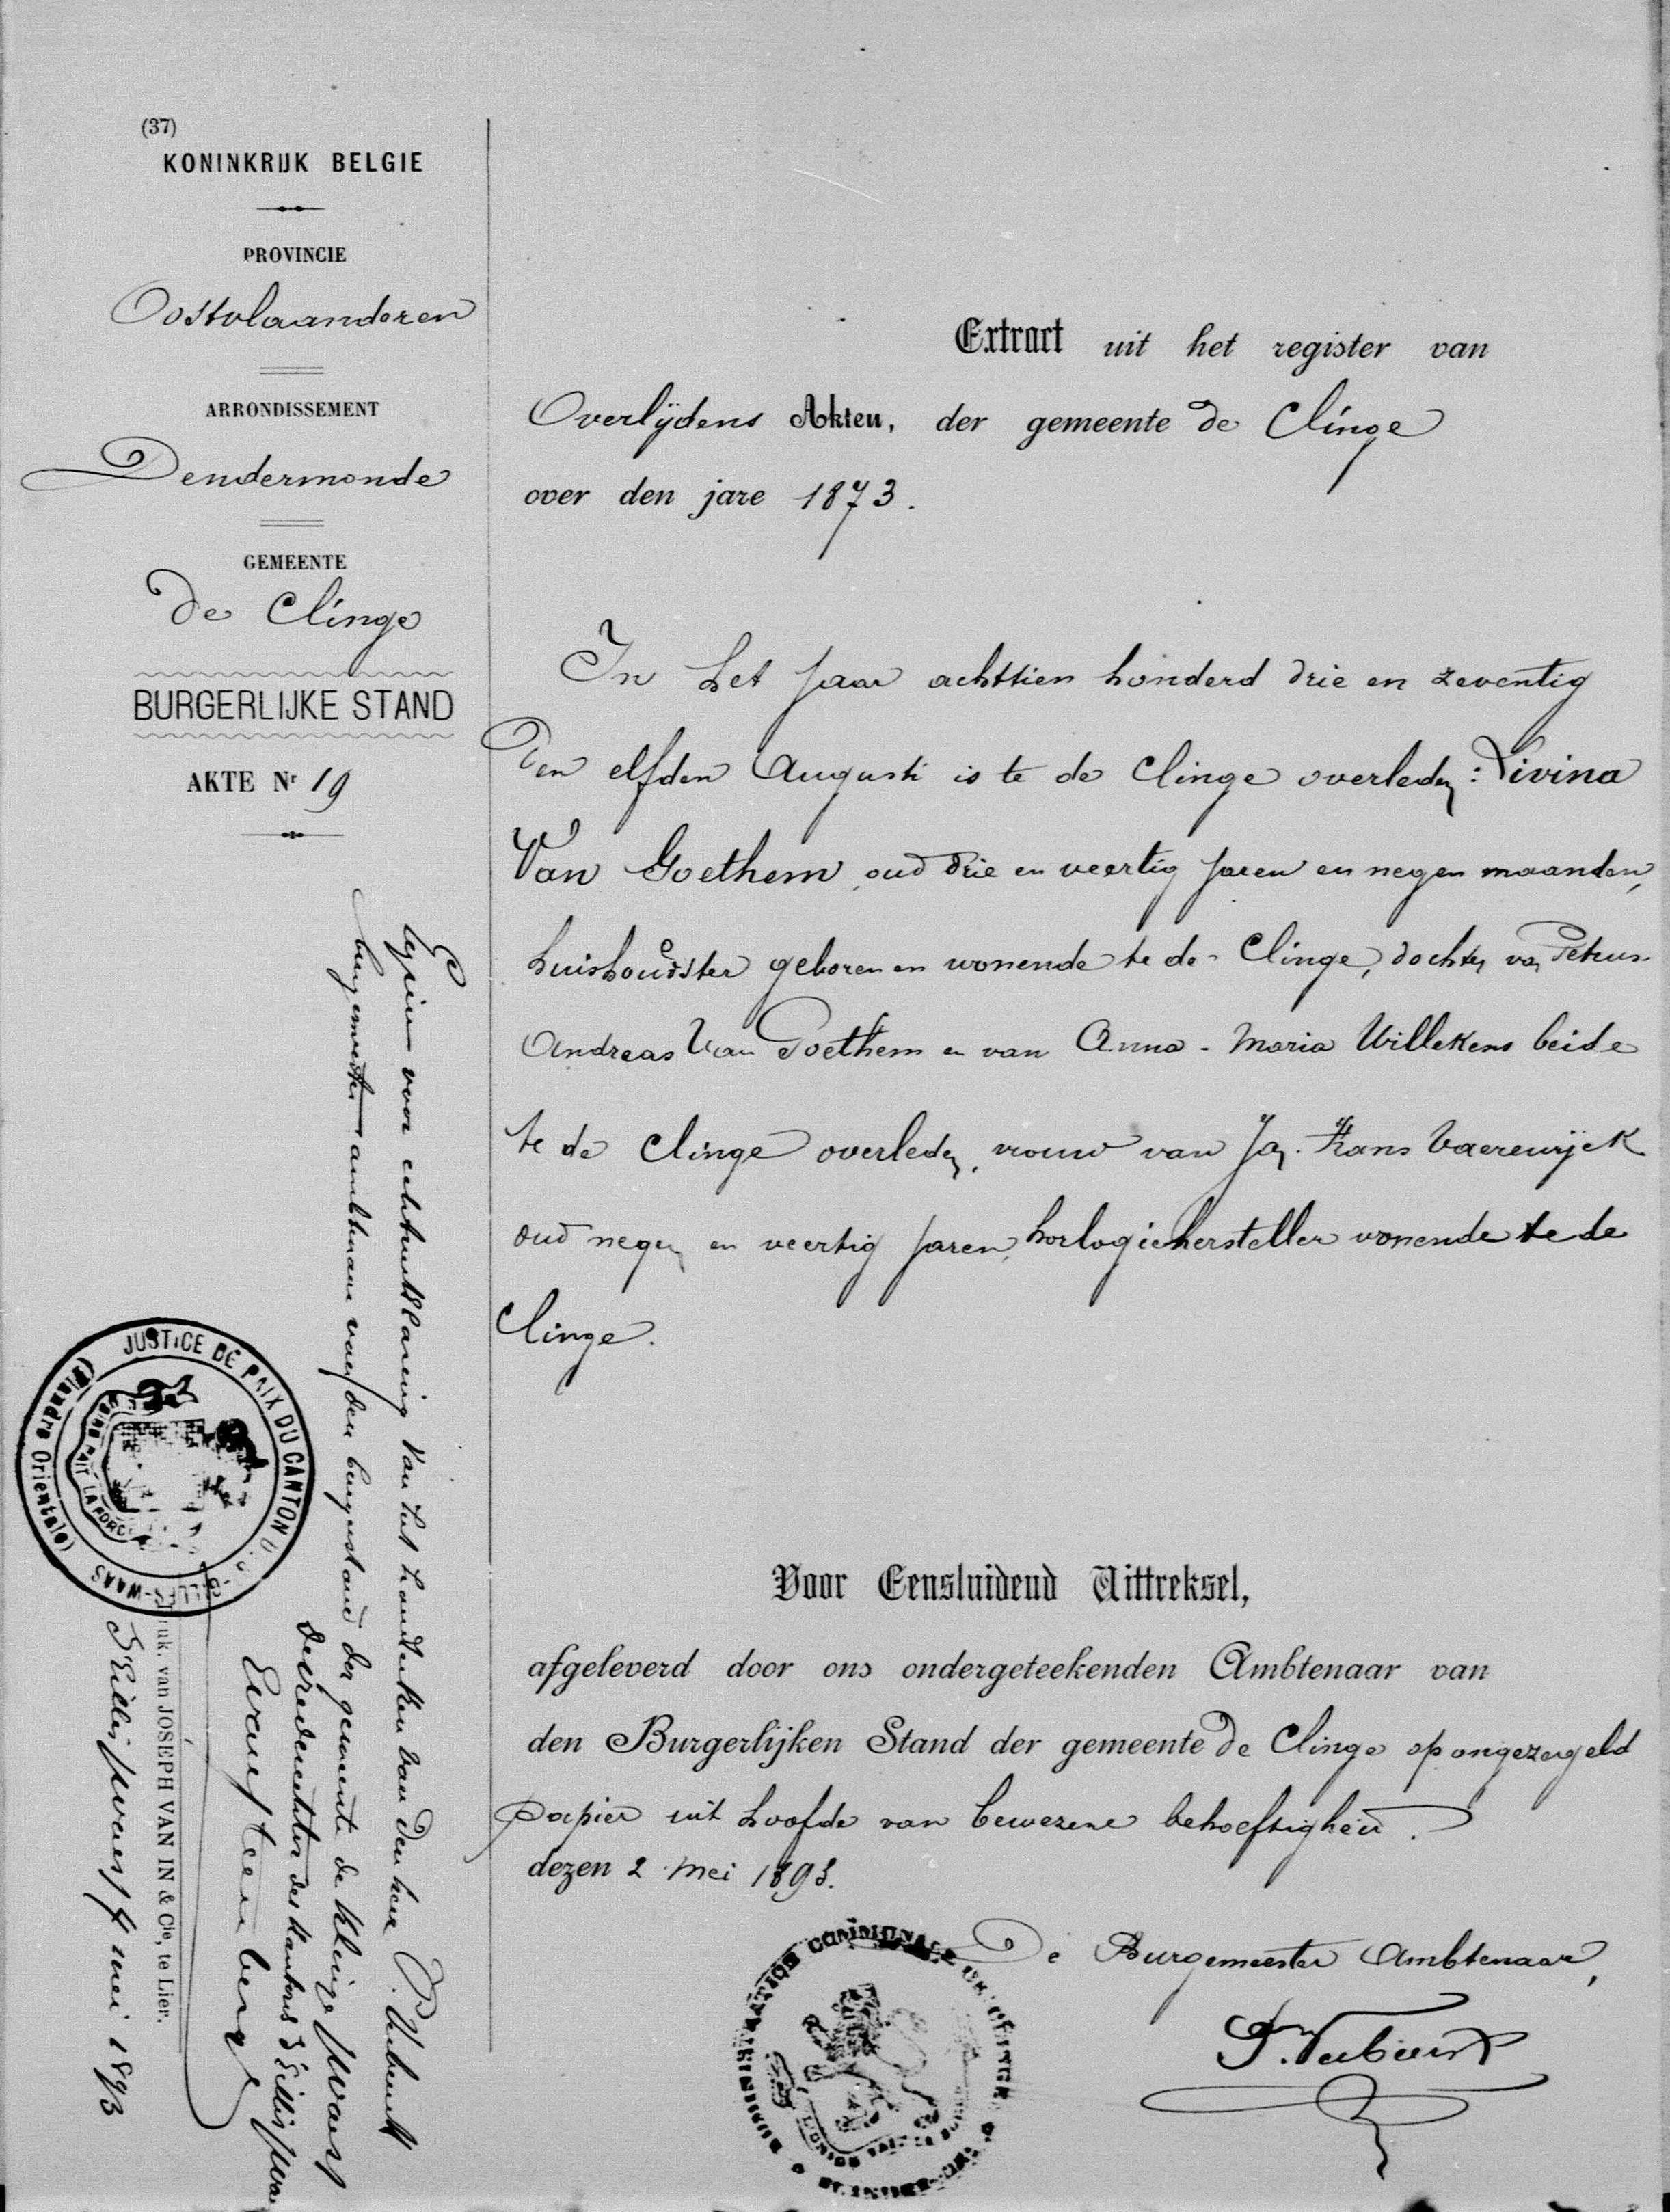 (37)
KONINKRIJK BELGIE
PROVINCIE
Oostvlaanderen
ARRONDISSEMENT
Dendermonde
GEMEENTE
de Clinge
BURGERLIJKE STAND
AKTE Nr 19
Extract uit het register van
Overlijdens Akten, der gemeente de Clinge
over den jare 1873.
In het jaar achttien honderd drie en zeventig
den elfden Augusti is te de Clinge overleden: Livina
Van Goethem, oud drie en veertig jaren en negen maanden,
huishoudster geboren en wonende te de Clinge, dochter van Petrus
Andreas Van Goethem en van Anna-Maria Willekens beide
te de Clinge overleden, vrouw van Jan Frans Vaerewijck
oud negen en veertig jaren, horlogiehersteller wonende te de
Clinge.
Voor Eensluidend Uittreksel,
afgeleverd door ons ondergeteekenden Ambtenaar van
den Burgerlijken Stand der gemeente de Clinge op ongezegeld
papier uit hoofde van bewezene behoeftigheid.
dezen 2 mei 1893.
De Burgemeester Ambtenaar,
ADMINISTRATION COMMUNALE DE
L'UNION FAIT LA FORCE
Gezien voor echtverklaring van het handteeken van den heer
burgemeester ambtenaar van den burgerstand der gemeente de Klinge
des kantons St Gillis
JUSTICE DE PAIX DU CANTON DE ST-GILLES-WAAS
(Flandre Orientale)
L'UNION FAIT LA FORCE
Druk. van JOSEPH VAN IN & Cie, te Lier.
St Gillis Waes 4 mei 1893